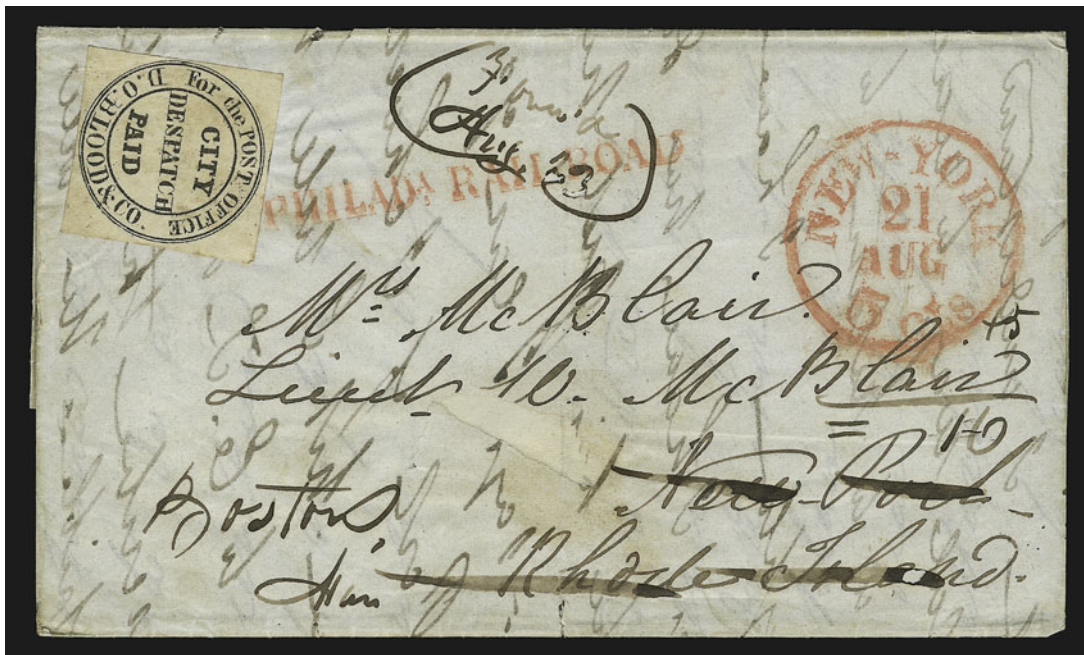 D.O. BLOOD & CO.
For the POST OFFICE
CITY
DESPATCH
PAID
Forw'd
Aug. 23
PHILADA RAILROAD
NEW-YORK
21
AUG
5 cts
Mrs McBlair.
+5
Lieut W. McBlair
= 10
New-Port
Boston,
Rhode Island.